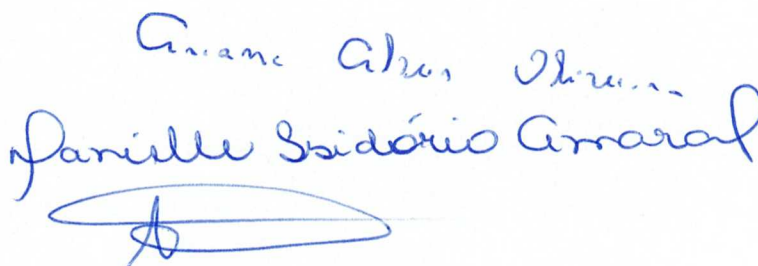 Ariane Alves Oliveira
Danielle Issidório Amaral